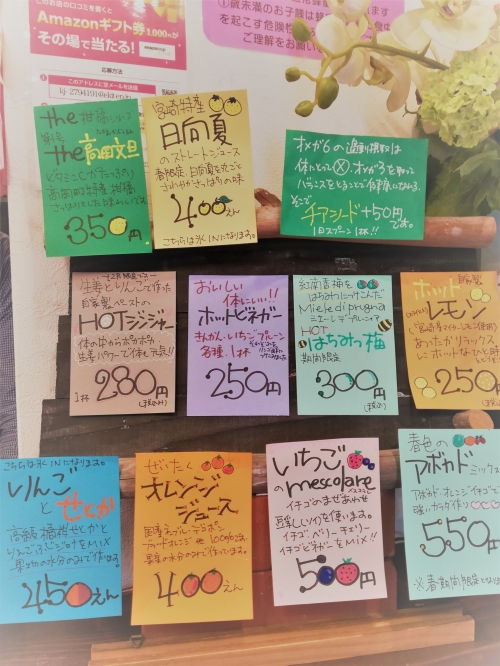 このお店の口コミを書くと
Amazonギフト券1000円が
その場で当たる!
応募方法
このアドレスに空メールを送信
①歳未満のお子様は
を起こす危険性
ご理解をお願い
the
the 高田文旦
350円
宮崎特産
日向夏
のストレートジュース
春限定 日向夏を丸ごと
さわやかさっぱりの味
400えん
こちらは氷INになります。
オメガ6の過剰摂取は
体にとって✕。オメガ3を取って
バランスをとることで健康になれる。
そこで
チアシード+50円
1日スプーン1杯!! です。
生姜とりんごで作った
自家製ペーストの
HOTジンジャー
体の中からポカポカ
生姜パワーで体も元気!!
1杯 280円
(税込み)
おいしい
体にいい…
ホットビネガー
きんかん・いちご・プルーン
各種・1杯
250円
紅南高梅を
はちみつにつけこんだ
Miele di prugna
HOT
はちみつ梅
期間限定
300円
(税込)
自家製
ホット
レモン
あったかリラックス
にホットなひと時
250円
こちらは氷INになります。
りんご
とせとか
高級柑橘せとかと
りんごふじジュースをMIX
果物の水分のみで作ります。
450えん
ぜいたく
オレンジ
ジュース
国産ネーブル
果実の水分のみで作っています。
400えん
いちご
のmescolare
イチゴのまぜあわせ
イチゴ ベリー チェリー
イチゴビネガーをMIX!!
500円
春色の
アボカドミックス
アボカド・オレンジ・イチゴで
550円
※春期間限定となります